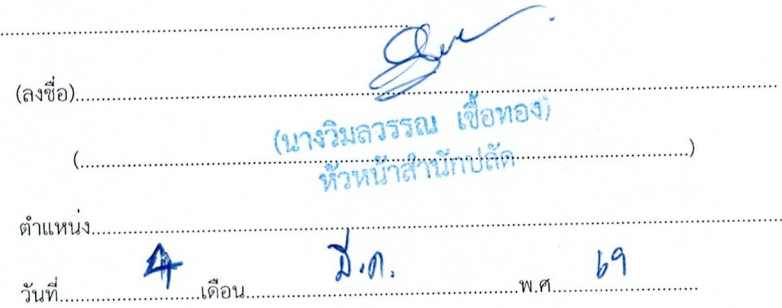 (ลงชื่อ)
(นางวิมลวรรณ เชื้อทอง)
(....................)
หัวหน้าสำนักปลัด
ตำแหน่ง
วันที่ 4 เดือน มี.ค. พ.ศ. 69